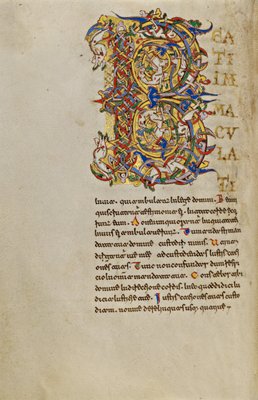 B
EA
TI
IM
MA
CU
LA
TI
in via. qui ambulant in lege domini. Beati
qui scrutantur testimonia eius. in toto corde
Non enim qui operantur
in viis eius ambulaverunt. Tu mandasti man
data tua custodiri nimis. Utinam
dirigantur vie mee ad custodiendas iustifica
tiones tuas. Tunc non confundar cum perspe
xero in omnibus mandatis tuis. Confitebor tibi
domine in directione cordis. in eo quod didici iu
dicia iustitie tue. Iustificationes tuas custo
diam. non me derelinquas usquequaque.